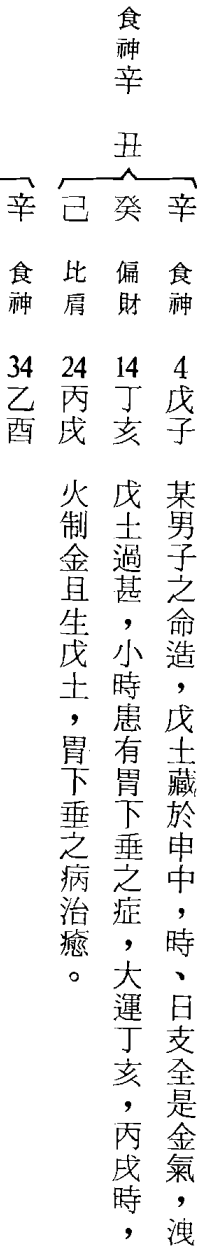 食神 辛 丑
辛 食神 4 戊子
癸 偏財 14 丁亥
己 比肩 24 丙戌
辛 食神 34 乙酉
某男子之命造，戊土藏於申中，時、日支全是金氣，洩
戊土過甚，小時患有胃下垂之症，大運丁亥，丙戌時，
火制金且生戊土，胃下垂之病治癒。